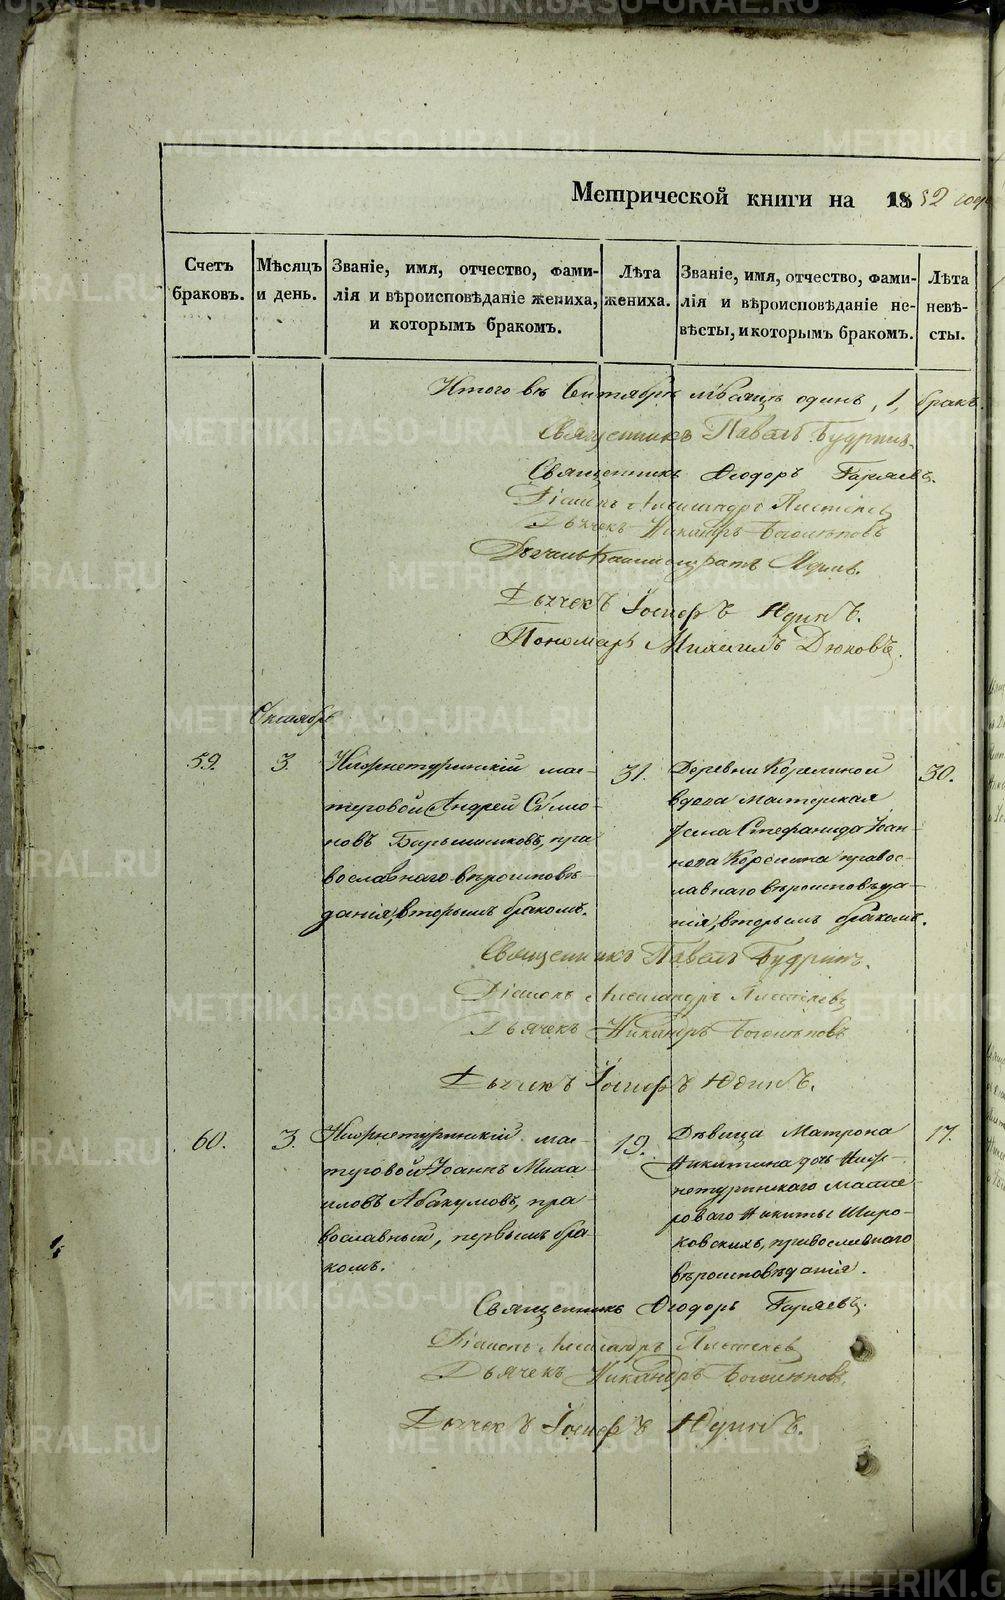 Метрической книги на 1852 годъ
Счетъ браковъ.
Мѣсяцъ и день.
Званіе, имя, отчество, фами-
лія и вѣроисповѣданіе жениха,
и которымъ бракомъ.
Лѣта жениха.
Званіе, имя, отчество, фами-
лія и вѣроисповѣданіе не-
вѣсты, и которымъ бракомъ.
Лѣта невѣ-
сты.
Итого въ Сентябрѣ мѣсяцѣ одинъ, 1, бракъ.
Священникъ Павелъ Будринъ.
Священникъ Ѳеодоръ Гаряевъ.
Діаконъ Александръ
Дьячекъ Никандръ
Дьячекъ Іосифъ Юдинъ.
Пономарь Михаилъ Дюковъ.
Октябрь
59.
3.
Нижнетуринскій мас-
теровой Андрей Сѵмео-
новъ Барышниковъ, пра
вославнаго вѣроисповѣ-
данія, вторымъ бракомъ.
31.
Деревни Корелиной
вдова мастерская
жена Стефанида Іоан-
нова Корелина правос-
лавнаго вѣроисповѣда-
нія, вторымъ бракомъ.
30.
Священникъ Павелъ Будринъ.
Діаконъ Александръ
Дьячекъ Никандръ
Дьячекъ Іосифъ Юдинъ.
60.
3.
Нижнетуринскій мас-
теровой Іоаннъ Миха
иловъ Абакумовъ, пра
вославный, первымъ бра
комъ.
19.
Дѣвица Матрона
Никитина дочь Ниж-
нетуринскаго масте
роваго Никиты Широ-
ковскихъ, православнаго
вѣроисповѣданія.
17.
Священникъ Ѳеодоръ Гаряевъ.
Діаконъ Александръ
Дьячекъ Никандръ
Дьячекъ Іосифъ Юдинъ.
METRIKI.GASO-URAL.RU